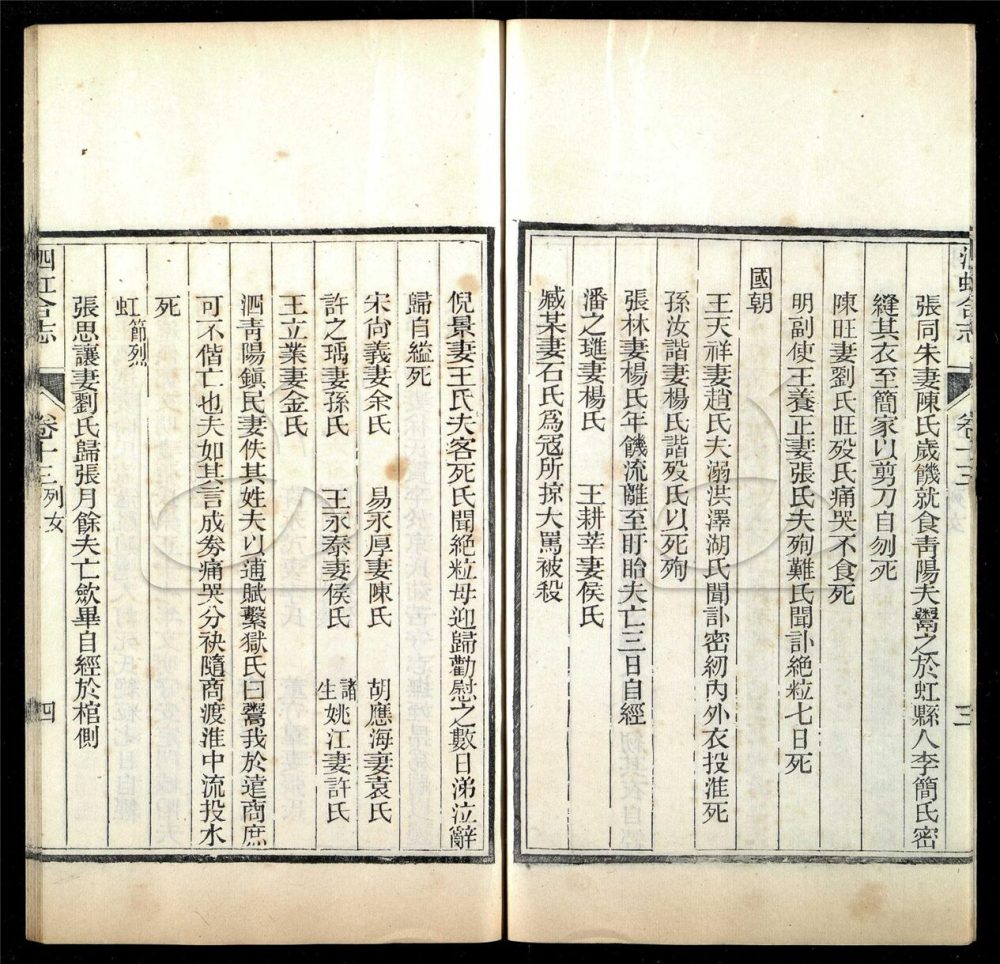 張同朱妻陳氏歲饑就食靑陽夫鬻之於虹縣人李簡氏密
縫其衣至簡家以剪刀自刎死
陳旺妻劉氏旺歿氏痛哭不食死
明副使王養正妻張氏夫殉難氏聞訃絶粒七日死
國朝
王天祥妻趙氏夫溺洪澤湖氏聞訃密紉內外衣投淮死
孫汝諧妻楊氏諧歿氏以死殉
張林妻楊氏年饑流離至盱眙夫亡三日自經
潘之璡妻楊氏 王耕莘妻侯氏
臧某妻石氏爲冦所掠大罵被殺
泗虹合志 卷十三 三
倪景妻王氏夫客死氏聞絶粒母迎歸勸慰之數日涕泣辭
歸自縊死
宋尙義妻余氏 易永厚妻陳氏 胡應海妻袁氏
許之瑀妻孫氏 王永泰妻侯氏 諸生姚江妻許氏
王立業妻金氏
泗靑陽鎭民妻佚其姓夫以逋賦繫獄氏曰鬻我於遠商庶
可不偕亡也夫如其言成券痛哭分袂隨商渡淮中流投水
死
虹節烈
張思讓妻劉氏歸張月餘夫亡歛畢自經於棺側
泗虹合志 卷十三列女 四